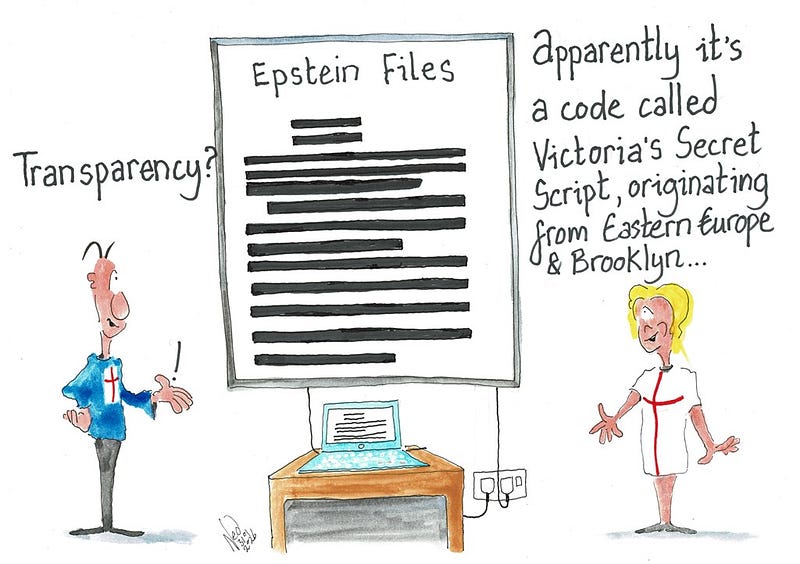 Epstein Files
Transparency?
!
apparently it's
a code called
Victoria's Secret
Script, originating
from Eastern Europe
& Brooklyn...